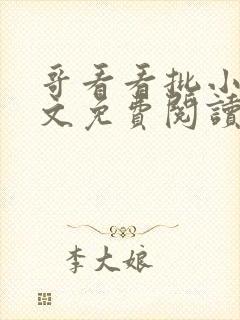 哥看看批小
文免費閱讀
李大娘